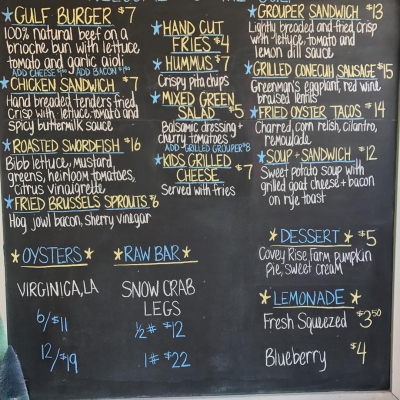 ★GULF BURGER $7
100% natural beef on a
brioche bun with lettuce
tomato and garlic aioli
★CHICKEN SANDWICH $7
Hand breaded tenders fried
crisp with lettuce, tomato and
spicy buttermilk sauce
★ROASTED SWORDFISH $16
Bibb lettuce, mustard,
greens, heirloom tomatoes,
citrus vinaigrette
★FRIED BRUSSELS SPROUTS $6
Hog jowl bacon, sherry vinegar
★HAND CUT
FRIES $4
★HUMMUS $7
Crispy pita chips
★MIXED GREEN
SALAD $5
Balsamic dressing +
cherry tomatoes
ADD GRILLED GROUPER $8
★KIDS GRILLED
CHEESE $7
Served with fries
★GROUPER SANDWICH $13
Lightly breaded and fried crisp
with lettuce, tomato and
lemon dill sauce
★GRILLED CONECUH SAUSAGE $15
Greenman's eggplant, red wine
braised lentils
★FRIED OYSTER TACOS $14
Charred corn relish, cilantro,
remoulade
★SOUP + SANDWICH $12
Sweet potato soup with
grilled goat cheese + bacon
on rye toast
★OYSTERS★
VIRGINICA, LA
6/$11
12/$19
★RAW BAR★
SNOW CRAB
LEGS
½# $12
1# $22
★DESSERT★ $5
Covey Rise Farm pumpkin
pie, sweet cream
★LEMONADE★
Fresh Squeezed $3.50
Blueberry $4